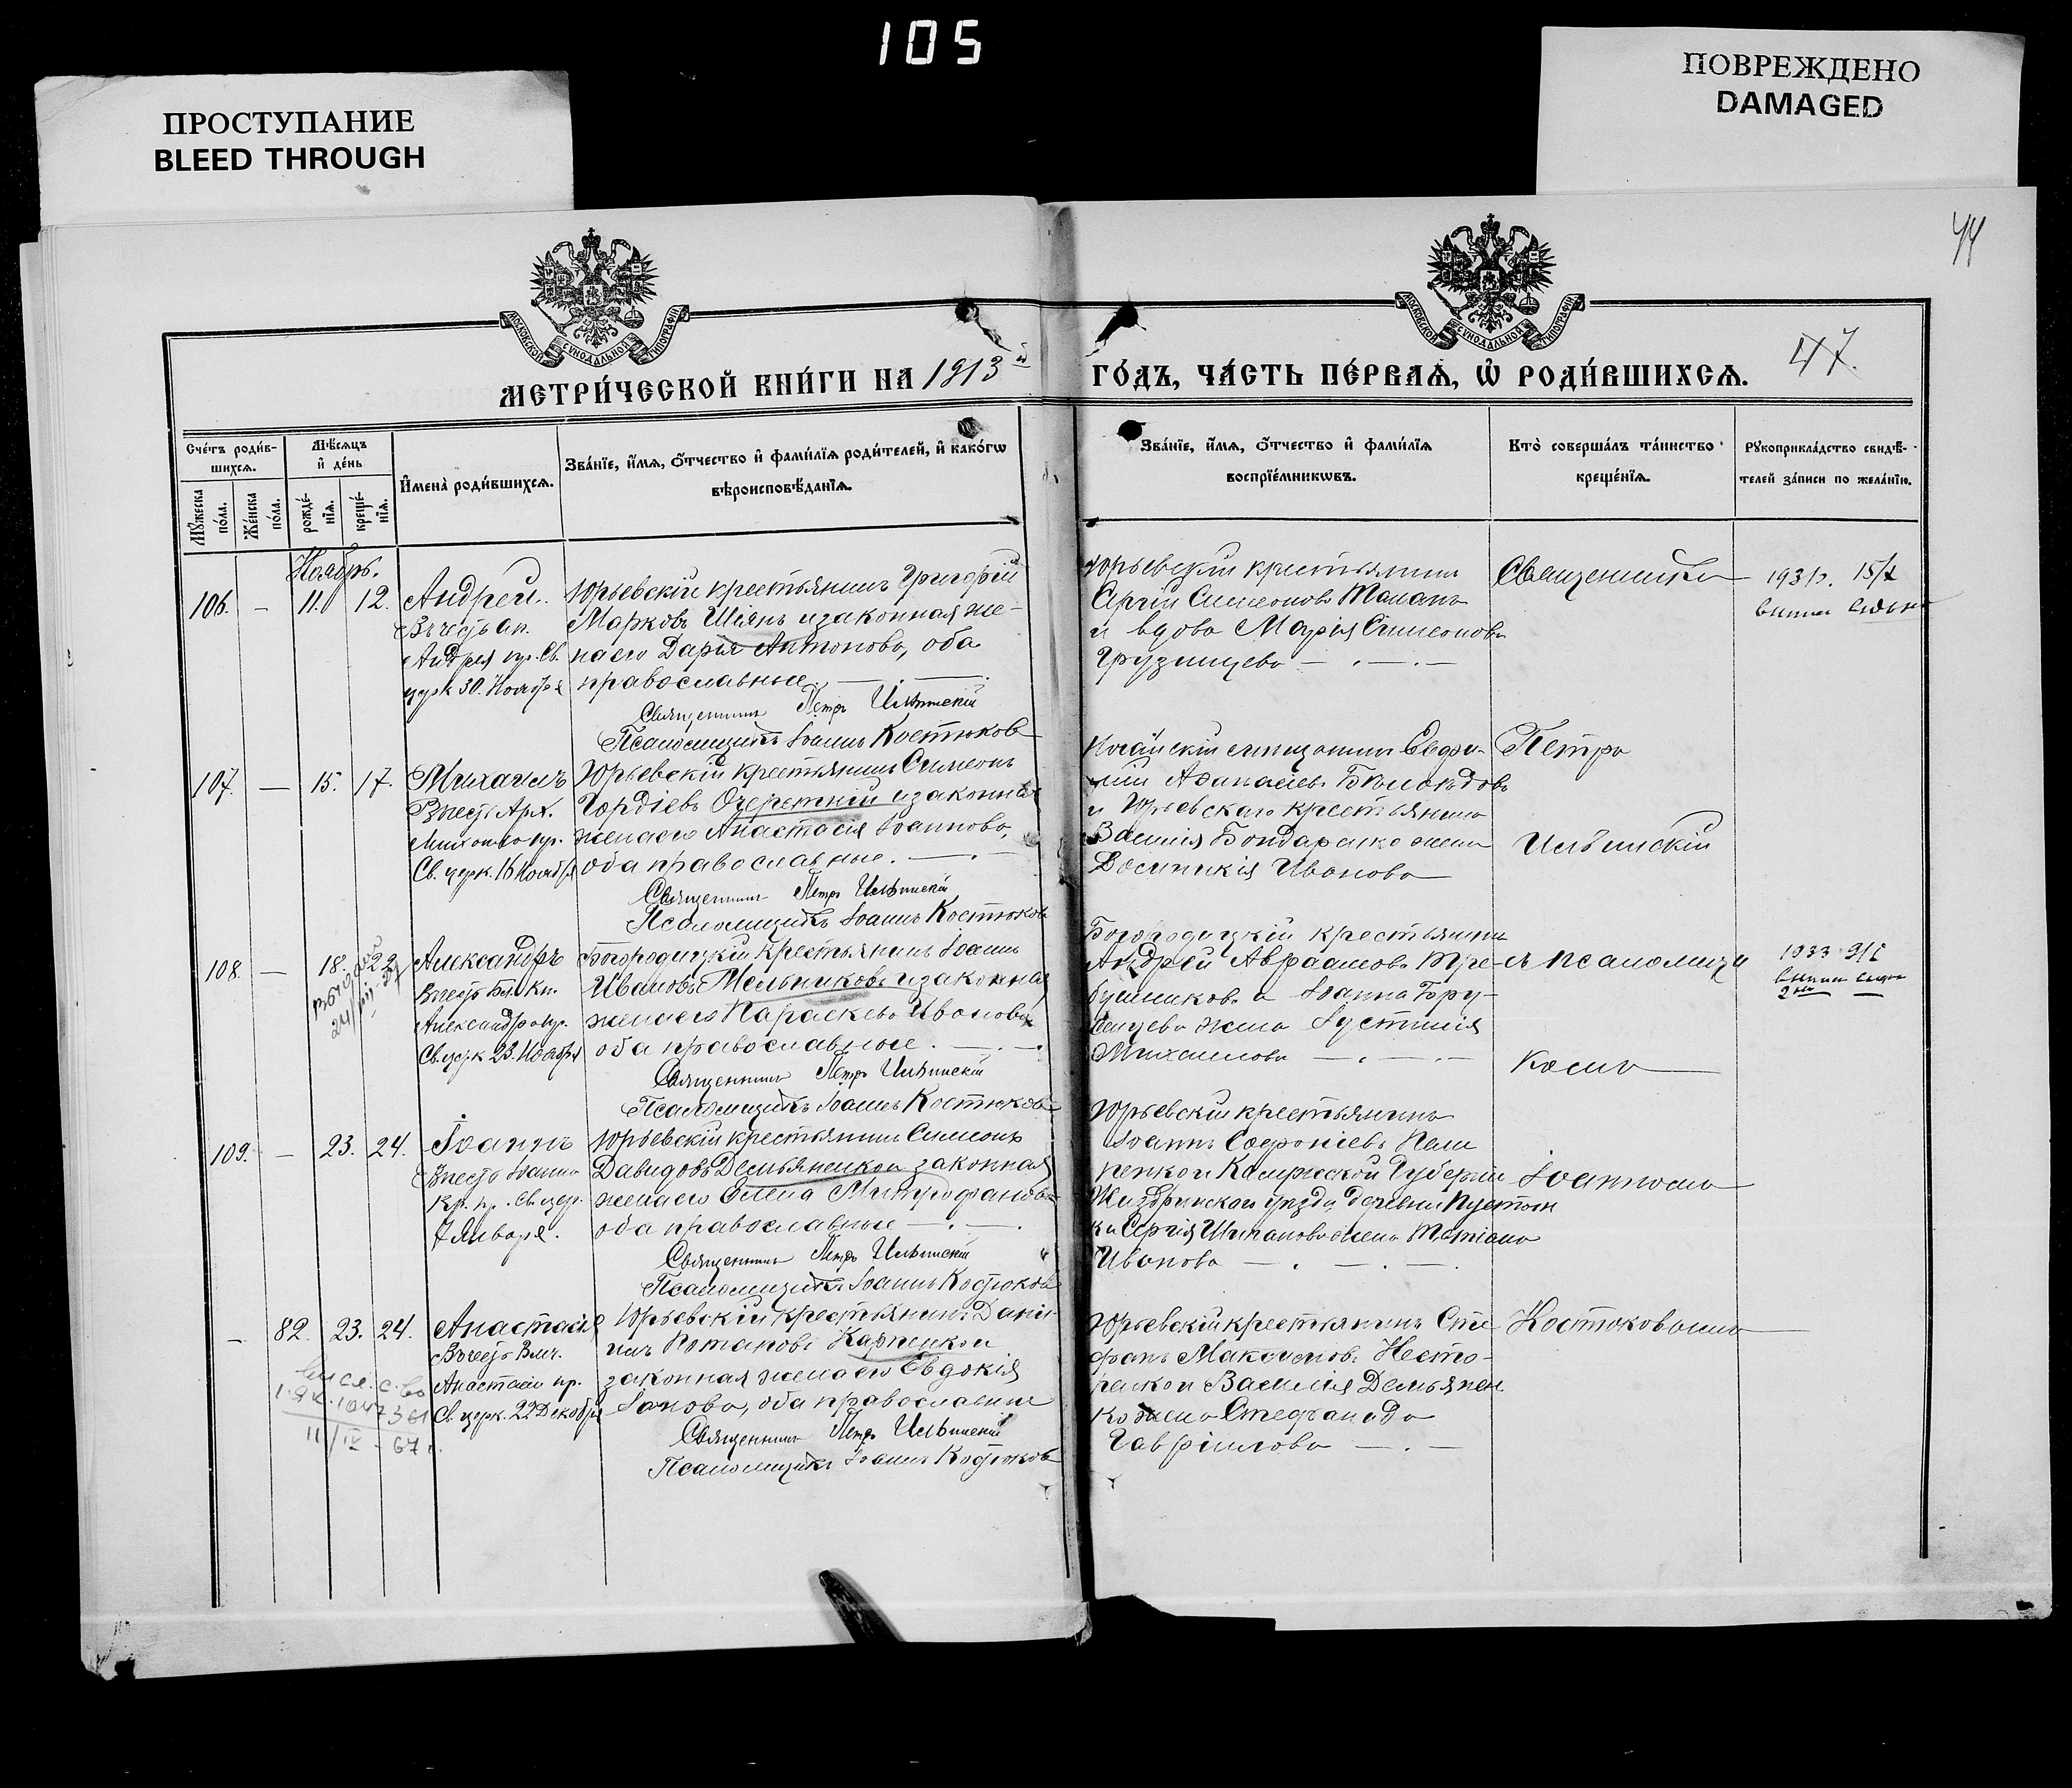 105
ПРОСТУПАНИЕ
BLEED THROUGH
ПОВРЕЖДЕНО
DAMAGED
44
МОСКОВСКОЙ СУНОДАЛЬНОЙ ТИПОГРАФІИ
МОСКОВСКОЙ СУНОДАЛЬНОЙ ТИПОГРАФІИ
МЕТРИ́ЧЕСКОЙ КНИ́ГИ НА 1913й
ГО́ДЪ, ЧА́СТЬ ПЕ́РВАѦ, Ѡ҆ РОДИ́ВШИХСѦ. 47.
Сче́тъ роди́в-
шихсѧ.
Мѣ́сѧцъ
и҆ де́нь
Мꙋ́жеска
по́ла.
Же́нска
по́ла.
рожде́-
нїѧ.
креще́-
нїѧ.
И҆мена̀ роди́вшихсѧ.
Зва́нїе, и҆́мѧ, ѻ҆́тчество и҆ фами́лїѧ роди́телей, и҆ како́гѡ
вѣроисповѣ́данїѧ.
Зва́нїе, и҆́мѧ, ѻ҆́тчество и҆ фами́лїѧ
воспрїе́мникѡвъ.
Кто̀ соверша́лъ та́инство
креще́нїѧ.
Рꙋкоприкла́дство свидѣ́-
телей за́писи по жела́нїю.
Ноябрь.
106. — 11. 12. Андрей.
Въ честь ап.
Андрея пр. Св.
церк 30. Ноября
Юрьевскій крестьянинъ Григорій
Марковъ Шіянъ и законная же-
на его Дарья Антонова, оба
православные.
Священникъ Петръ Ильинскій
Псаломщикъ Іоаннъ Костюковъ
Юрьевскій крестьянинъ
Сергій Симеоновъ
и вдова Марія Симеонова
Грузинцева
Священникъ
1931г. 15/X
107. — 15. 17. Михаилъ
Въ честь Арх.
Михаила пр.
Св. церк. 16 Ноября
Юрьевскій крестьянинъ Симеонъ
Гордіевъ Очеретній и законная
жена его Анастасія Іоаннова,
оба православные.
Священникъ Петръ Ильинскій
Псаломщикъ Іоаннъ Костюковъ
мѣщанинъ Евфи-
мій Аѳанасіевъ Бѣлоѣдовъ
и Юрьевскаго крестьянина
Василія Бондаренко жена
Иванова
Петръ
Ильинскій
108. — 18. 22. Александръ
24/III-27
Въ честь Бл. Кн.
Александра пр.
Св. церк 23. Ноября
Богородицкій крестьянинъ Іоаннъ
Ивановъ Мельниковъ и законная
жена его Параскева Иванова
оба православные.
Священникъ Петръ Ильинскій
Псаломщикъ Іоаннъ Костюковъ
Богородицкій крестьянинъ
Андрей Авраамовъ Тре-
бушниковъ и Іоанна Бру-
сенцева жена Іустинія
Михаилова
съ псаломщи
комъ
1933 9/I
109. — 23. 24. Іоаннъ
Въ честь Іоанна
Кр. пр. Св. цер.
7 Января.
Юрьевскій крестьянинъ Симеонъ
Давидовъ Демьяненко и законная
жена его Елена Митрофанова
оба православные
Священникъ Петръ Ильинскій
Псаломщикъ Іоаннъ Костюковъ
Юрьевскій крестьянинъ
Іоаннъ Софроніевъ
Калужской Губерніи
Жиздринскаго уѣзда деревни
Сергія жена Татіана
Иванова
Іоанномъ
— 82. 23. 24. Анастасія
Въ честь Влмч.
Анастасіи пр.
Св. церк. 22 Декабря
11/IV-67г.
Юрьевскій крестьянинъ Дані-
илъ Потаповъ Карпенко и
законная жена его Евдокія
оба православные
Священникъ Петръ Ильинскій
Псаломщикъ Іоаннъ Костюковъ
Юрьевскій крестьянинъ Сте-
фанъ Максимовъ Несте-
ренко и Василія Демьянен
ко жена Стефанида
Гавріилова
Костюковымъ